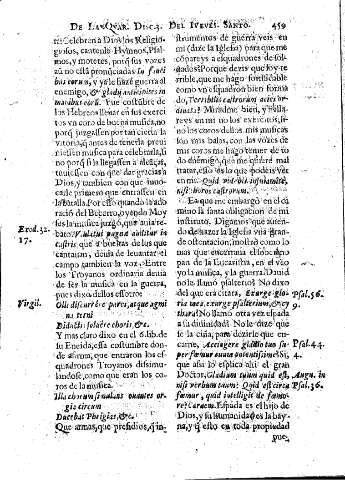 DE LA QVAR. DISC. 3. DEL IVEVES SANTO. 459
tis Celebren a Dios los Religio-
gosos, cantenle Hymnos, Psal-
mos, y motetes, porq̃ sus vozes
aũ no està pronunciadas In fauci
bus eorum, y ya le hazẽ guerra al
enemigo, & gladij ancipites in
manibus eorũ. Fue costũbre de
los Hebreos lleuar en sus exerci
tos vn coro de buena musica, no
porq̃ juzgassen por tan cierta la
vitoria, q̃ antes de tenerla preui
niessen musica para celebrarla, si
no porq̃ si la llegassen a alcãçar,
tuuiessen con que dar gracias a
Dios, y tambien con que inuo-
carle primero que entrassen en
la batalla. Por esso quando la ado
racion del Bezerro, oyendo Moy
ses la musica juzgò, que auia re-
Exod. 32. bato: Vlulatus pugnæ auditur in
17. castris que a bueltas de los que
cantauan, deuia de leuantar el
campo tambien la voz. Entre
los Troyanos ordinaria deuia
de ser la musica en la guerra,
pues dixo dellos el otro:
Virgil. Olli discurrere pares, atque agmi
na terni
Diductis soluêre choris, &c.
Y mas claro dixo en el 6. lib. de
su Eneida, essa costumbre don-
de afirma, que entraron los es-
quadrones Troyanos dissimu-
landose, como que eran los co-
ros de la musica.
Illa chorum simulans euantes or-
gia circum
Ducebat Phrigias, &c.
Que armas, que presidios, q̃ in-
strumentos de guerra veis en
mi (dize la Iglesia) para que me
compareys a esquadrones de sol-
dados? Porque dezis que soy te-
rrible, que me hago formidable
como vn esquadron bien forma
do, Terribilis castrorum acies or-
dinata? Miradme bien, y no ha-
lareys en mi no los exercitos, si-
no los coros dellos mis musicas
son mis balas, con las vozes de
mis coros me hago temer de to
do enemigo, que me quisiere mal
tratar, esso es lo que podeis ver
en mi. Quid videbis in sulamite,
nisi choros castrorum.
Ea que me embargò en el ca
mino la santa obligacion de mi
instituto. Digamos que auien-
do de hazer la Iglesia vna gran-
de ostentacion, mostrò como lo
mas que encerraua el sobe-
pan de la Eucaristia, en el vi-
vo la musica, y la guerra. Dauid
no le llamò psalterio? No dixo
del que era citara, Exurge glo- Psal. 56.
ria mea, exurge psalterium, & cy 9.
thara? No llamò otra vez espada
a su diuinidad? No le dixo que
se la ciña, para dezirle que en-
carne, Accingere gladio tuo su- Psal. 44.
per fœmur tuum potentissime? Si, 4.
que assi lo explica alli el gran
Doctor, Gladium tuum quid est, Aug. in
nisi verbum tuum? Quid est circa Psal. 36.
fœmur, quid intelligit de fœmo-
re? Carnem. Espada es el hijo de
Dios, y su humanidad es la bay-
na, y q̃ esto en toda propiedad
pue-